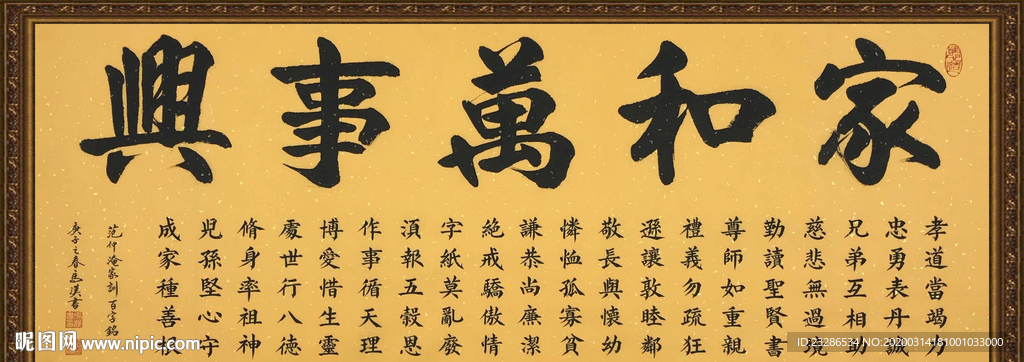 家和萬事興
孝道當竭力
忠勇表丹誠
兄弟互相助
慈悲無過境
勤讀聖賢書
尊師如重親
禮義勿疏狂
遜讓敦睦鄰
敬長與懷幼
憐恤孤寡貧
謙恭尚廉潔
絕戒驕傲情
字紙莫亂廢
須報五穀恩
作事循天理
博愛惜生靈
處世行八德
脩身率祖神
兒孫堅心守
成家種善
范仲淹家訓百字銘
庚子之春
昵图网 www.nipic.com
ID:23286534 NO:20200314181001033000